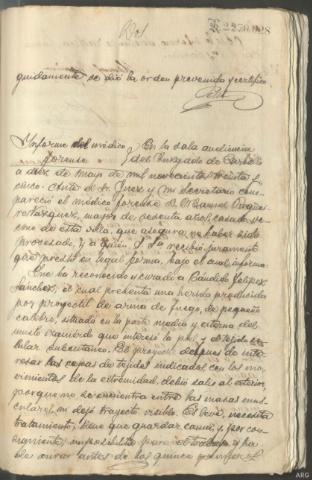 Dos
guidamente se dió la orden prevenida y certifico
Informe del médico forense
En la sala audiencia
del Juzgado de Carballo
a diez de Mayo de mil novecientos treinta y
cinco. Ante el Sr. Juez y mi Secretario com-
pareció el médico forense D. Manuel
Vázquez, mayor de sesenta años, casado, ve-
cino de esta villa, que asegura no haber sido
procesado, y a quien S. Sª recibió juramento
que prestó en legal forma, bajo el cual, informa:
Que ha reconocido y curado a Cándido
Sánchez, el cual presenta una herida producida
por proyectil de arma de fuego, de pequeño
calibre, situada en la parte media y externa del
muslo izquierdo que interesó la piel y el tejido ce-
lular subcutáneo. El proyectil después de inte-
resar las capas de tejidos indicados con los mo-
vimientos de la extremidad, debió salir al exterior,
porque no se encuentra entre las masas mus-
culares, ni dejó trayecto visible. Es leve, necesita
tratamiento, tiene que guardar cama, y por con-
siguiente imposibilita para el trabajo y ha
de curar antes de los quince
ARG